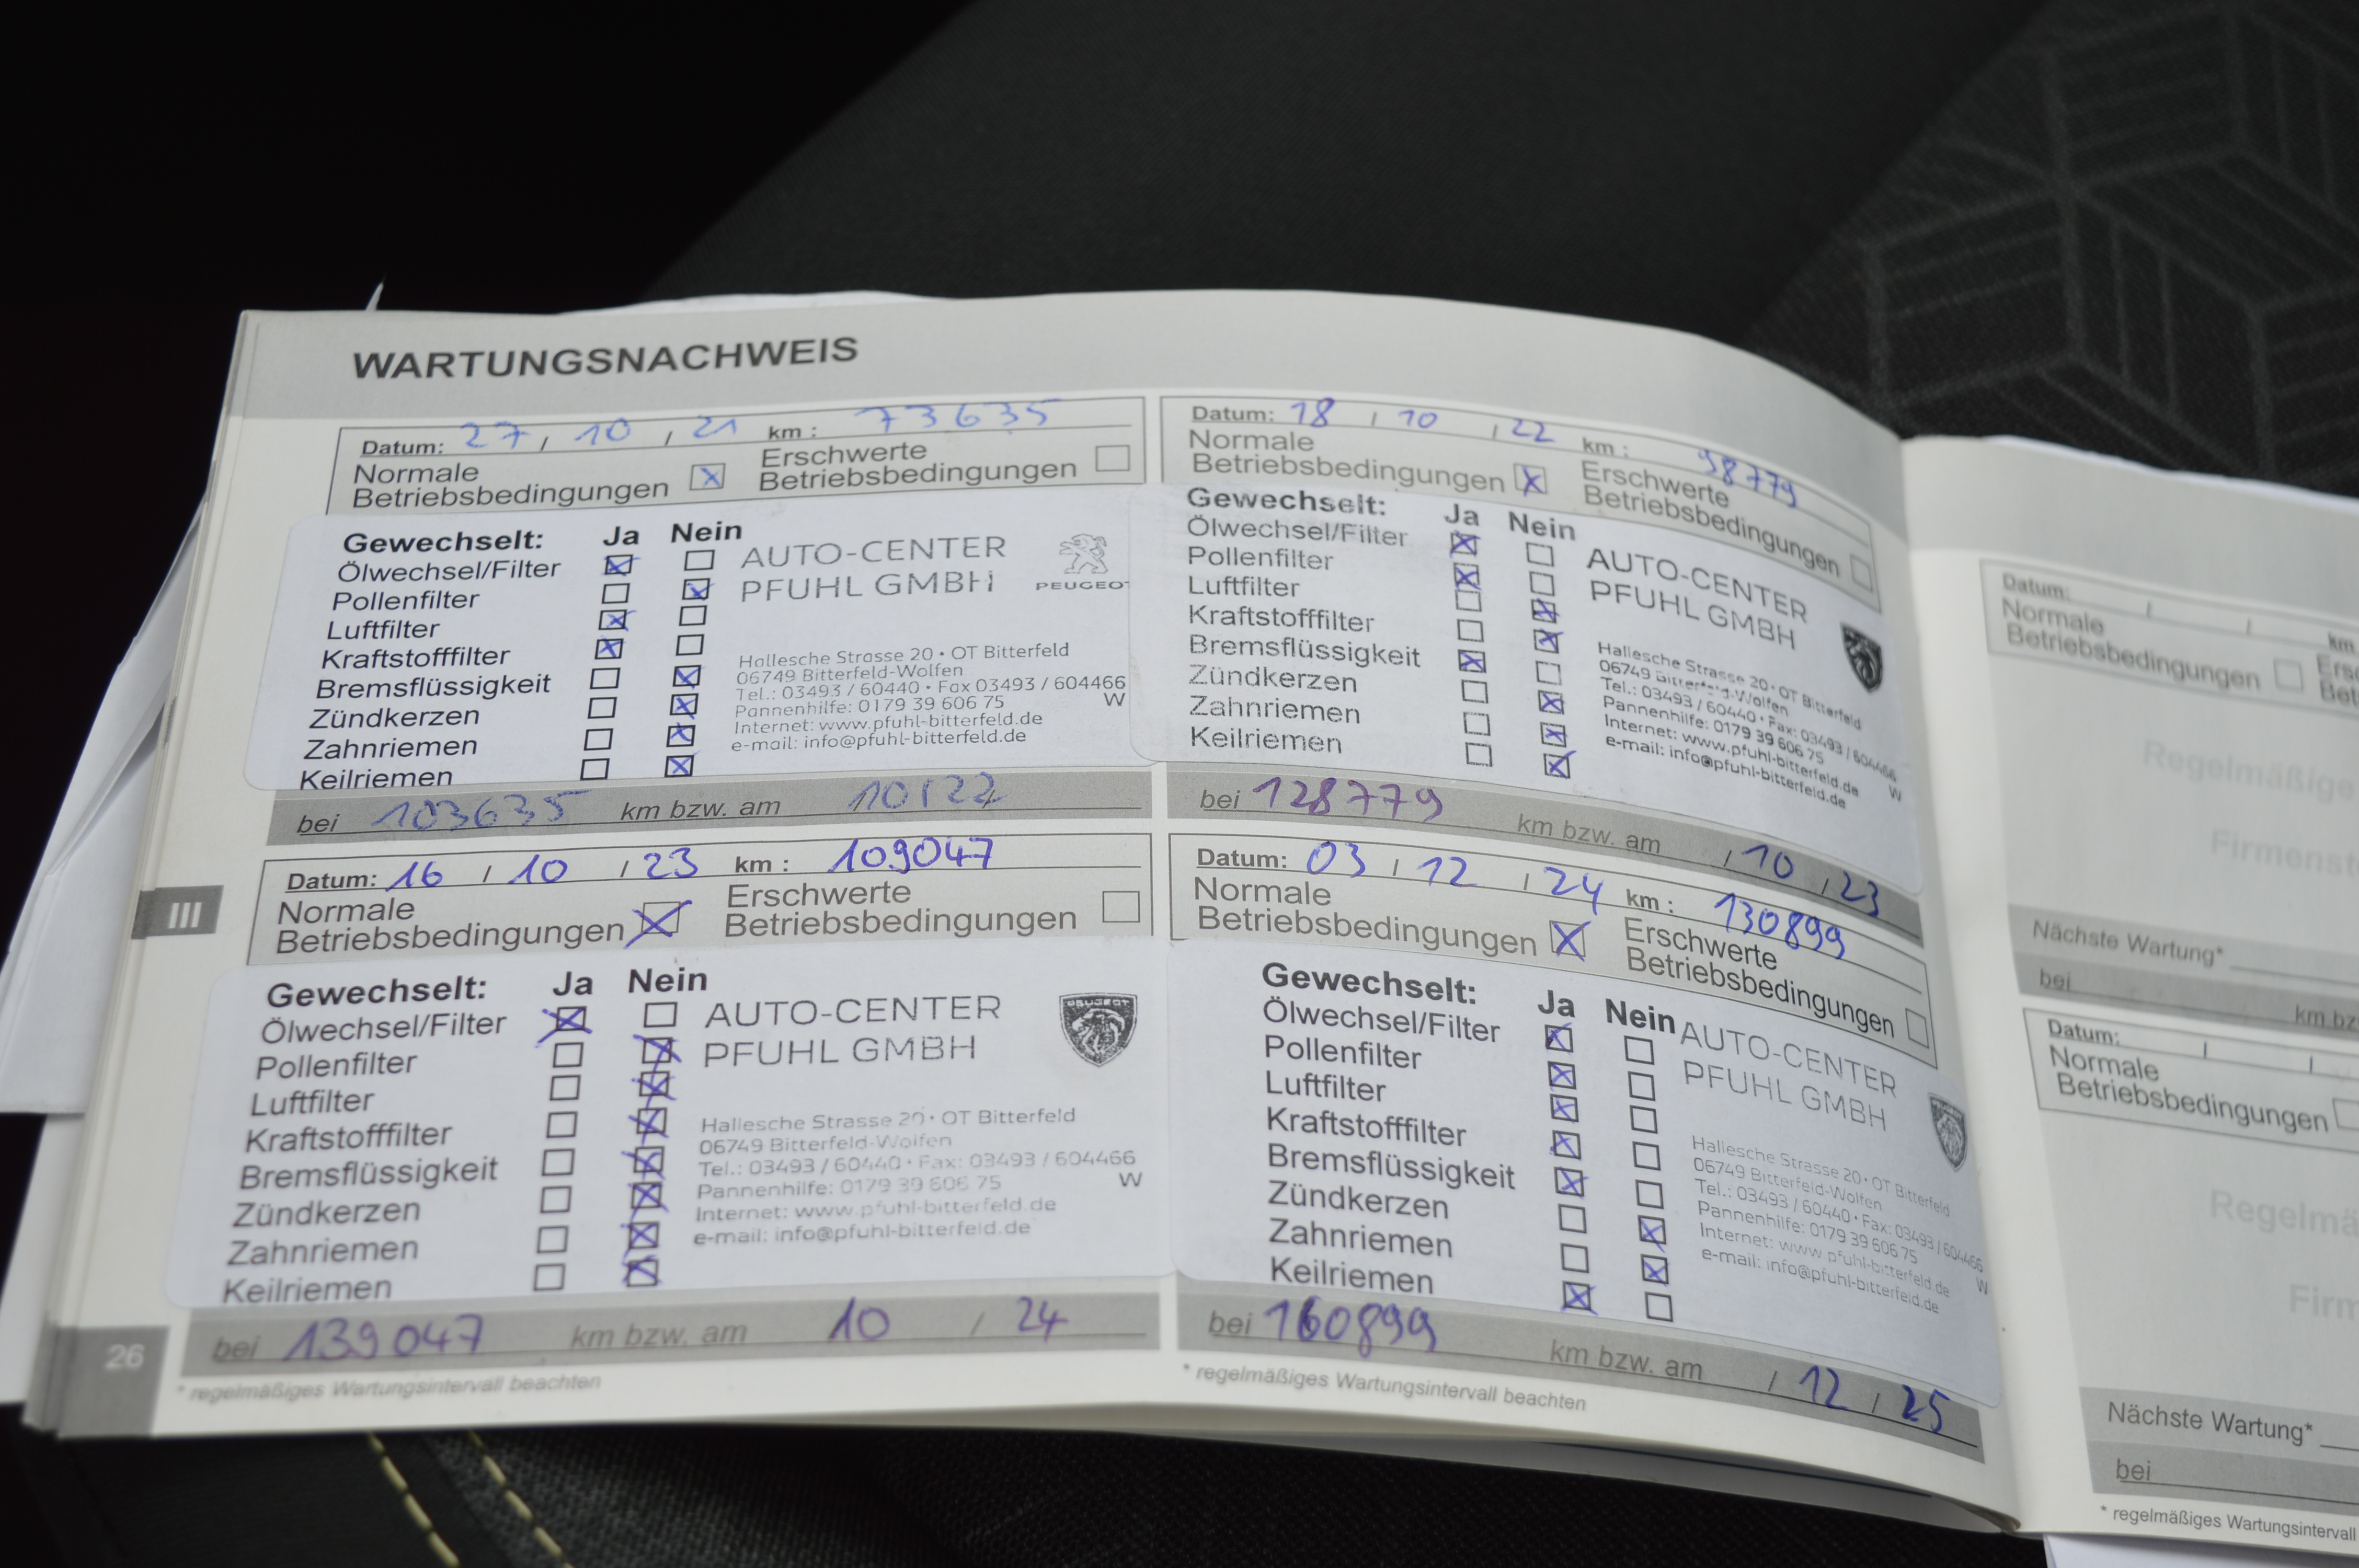 WARTUNGSNACHWEIS
Datum: 27 / 10 / 21 km : 73635
Normale Betriebsbedingungen
Erschwerte Betriebsbedingungen
Gewechselt: Ja Nein
Ölwechsel/Filter
Pollenfilter
Luftfilter
Kraftstofffilter
Bremsflüssigkeit
Zündkerzen
Zahnriemen
Keilriemen
AUTO-CENTER
PFUHL GMBH
PEUGEOT
Hallesche Strasse 20 • OT Bitterfeld
06749 Bitterfeld-Wolfen
Tel.: 03493 / 60440 • Fax 03493 / 604466
Pannenhilfe: 0179 39 606 75 W
Internet: www.pfuhl-bitterfeld.de
e-mail: info@pfuhl-bitterfeld.de
bei 103635 km bzw. am 10/22
Datum: 18 / 10 / 22 km : 98779
Normale Betriebsbedingungen
Erschwerte Betriebsbedingungen
Gewechselt: Ja Nein
Ölwechsel/Filter
Pollenfilter
Luftfilter
Kraftstofffilter
Bremsflüssigkeit
Zündkerzen
Zahnriemen
Keilriemen
AUTO-CENTER
PFUHL GMBH
Hallesche Strasse 20 • OT Bitterfeld
06749 Bitterfeld-Wolfen
Tel.: 03493 / 60440 • Fax: 03493 / 604466
Pannenhilfe: 0179 39 606 75 W
Internet: www.pfuhl-bitterfeld.de
e-mail: info@pfuhl-bitterfeld.de
bei 128779 km bzw. am / 10 / 23
Datum: 16 / 10 / 23 km : 109047
Normale Betriebsbedingungen
Erschwerte Betriebsbedingungen
Gewechselt: Ja Nein
Ölwechsel/Filter
Pollenfilter
Luftfilter
Kraftstofffilter
Bremsflüssigkeit
Zündkerzen
Zahnriemen
Keilriemen
AUTO-CENTER
PFUHL GMBH
PEUGEOT
Hallesche Strasse 20 • OT Bitterfeld
06749 Bitterfeld-Wolfen
Tel.: 03493 / 60440 • Fax: 03493 / 604466
Pannenhilfe: 0179 39 606 75 W
Internet: www.pfuhl-bitterfeld.de
e-mail: info@pfuhl-bitterfeld.de
bei 139047 km bzw. am 10 / 24
* regelmäßiges Wartungsintervall beachten
Datum: 03 / 12 / 24 km : 130899
Normale Betriebsbedingungen
Erschwerte Betriebsbedingungen
Gewechselt: Ja Nein
Ölwechsel/Filter
Pollenfilter
Luftfilter
Kraftstofffilter
Bremsflüssigkeit
Zündkerzen
Zahnriemen
Keilriemen
AUTO-CENTER
PFUHL GMBH
Hallesche Strasse 20 • OT Bitterfeld
06749 Bitterfeld-Wolfen
Tel.: 03493 / 60440 • Fax: 03493 / 604466
Pannenhilfe: 0179 39 606 75 W
Internet: www.pfuhl-bitterfeld.de
e-mail: info@pfuhl-bitterfeld.de
bei 160899 km bzw. am / 12 / 25
* regelmäßiges Wartungsintervall beachten
III
26
Datum: / / km
Normale
Betriebsbedingungen
Regelmäßige
Nächste Wartung*
bei km bz
Datum: / /
Normale
Betriebsbedingungen
Nächste Wartung*
bei
* regelmäßiges Wartungsintervall